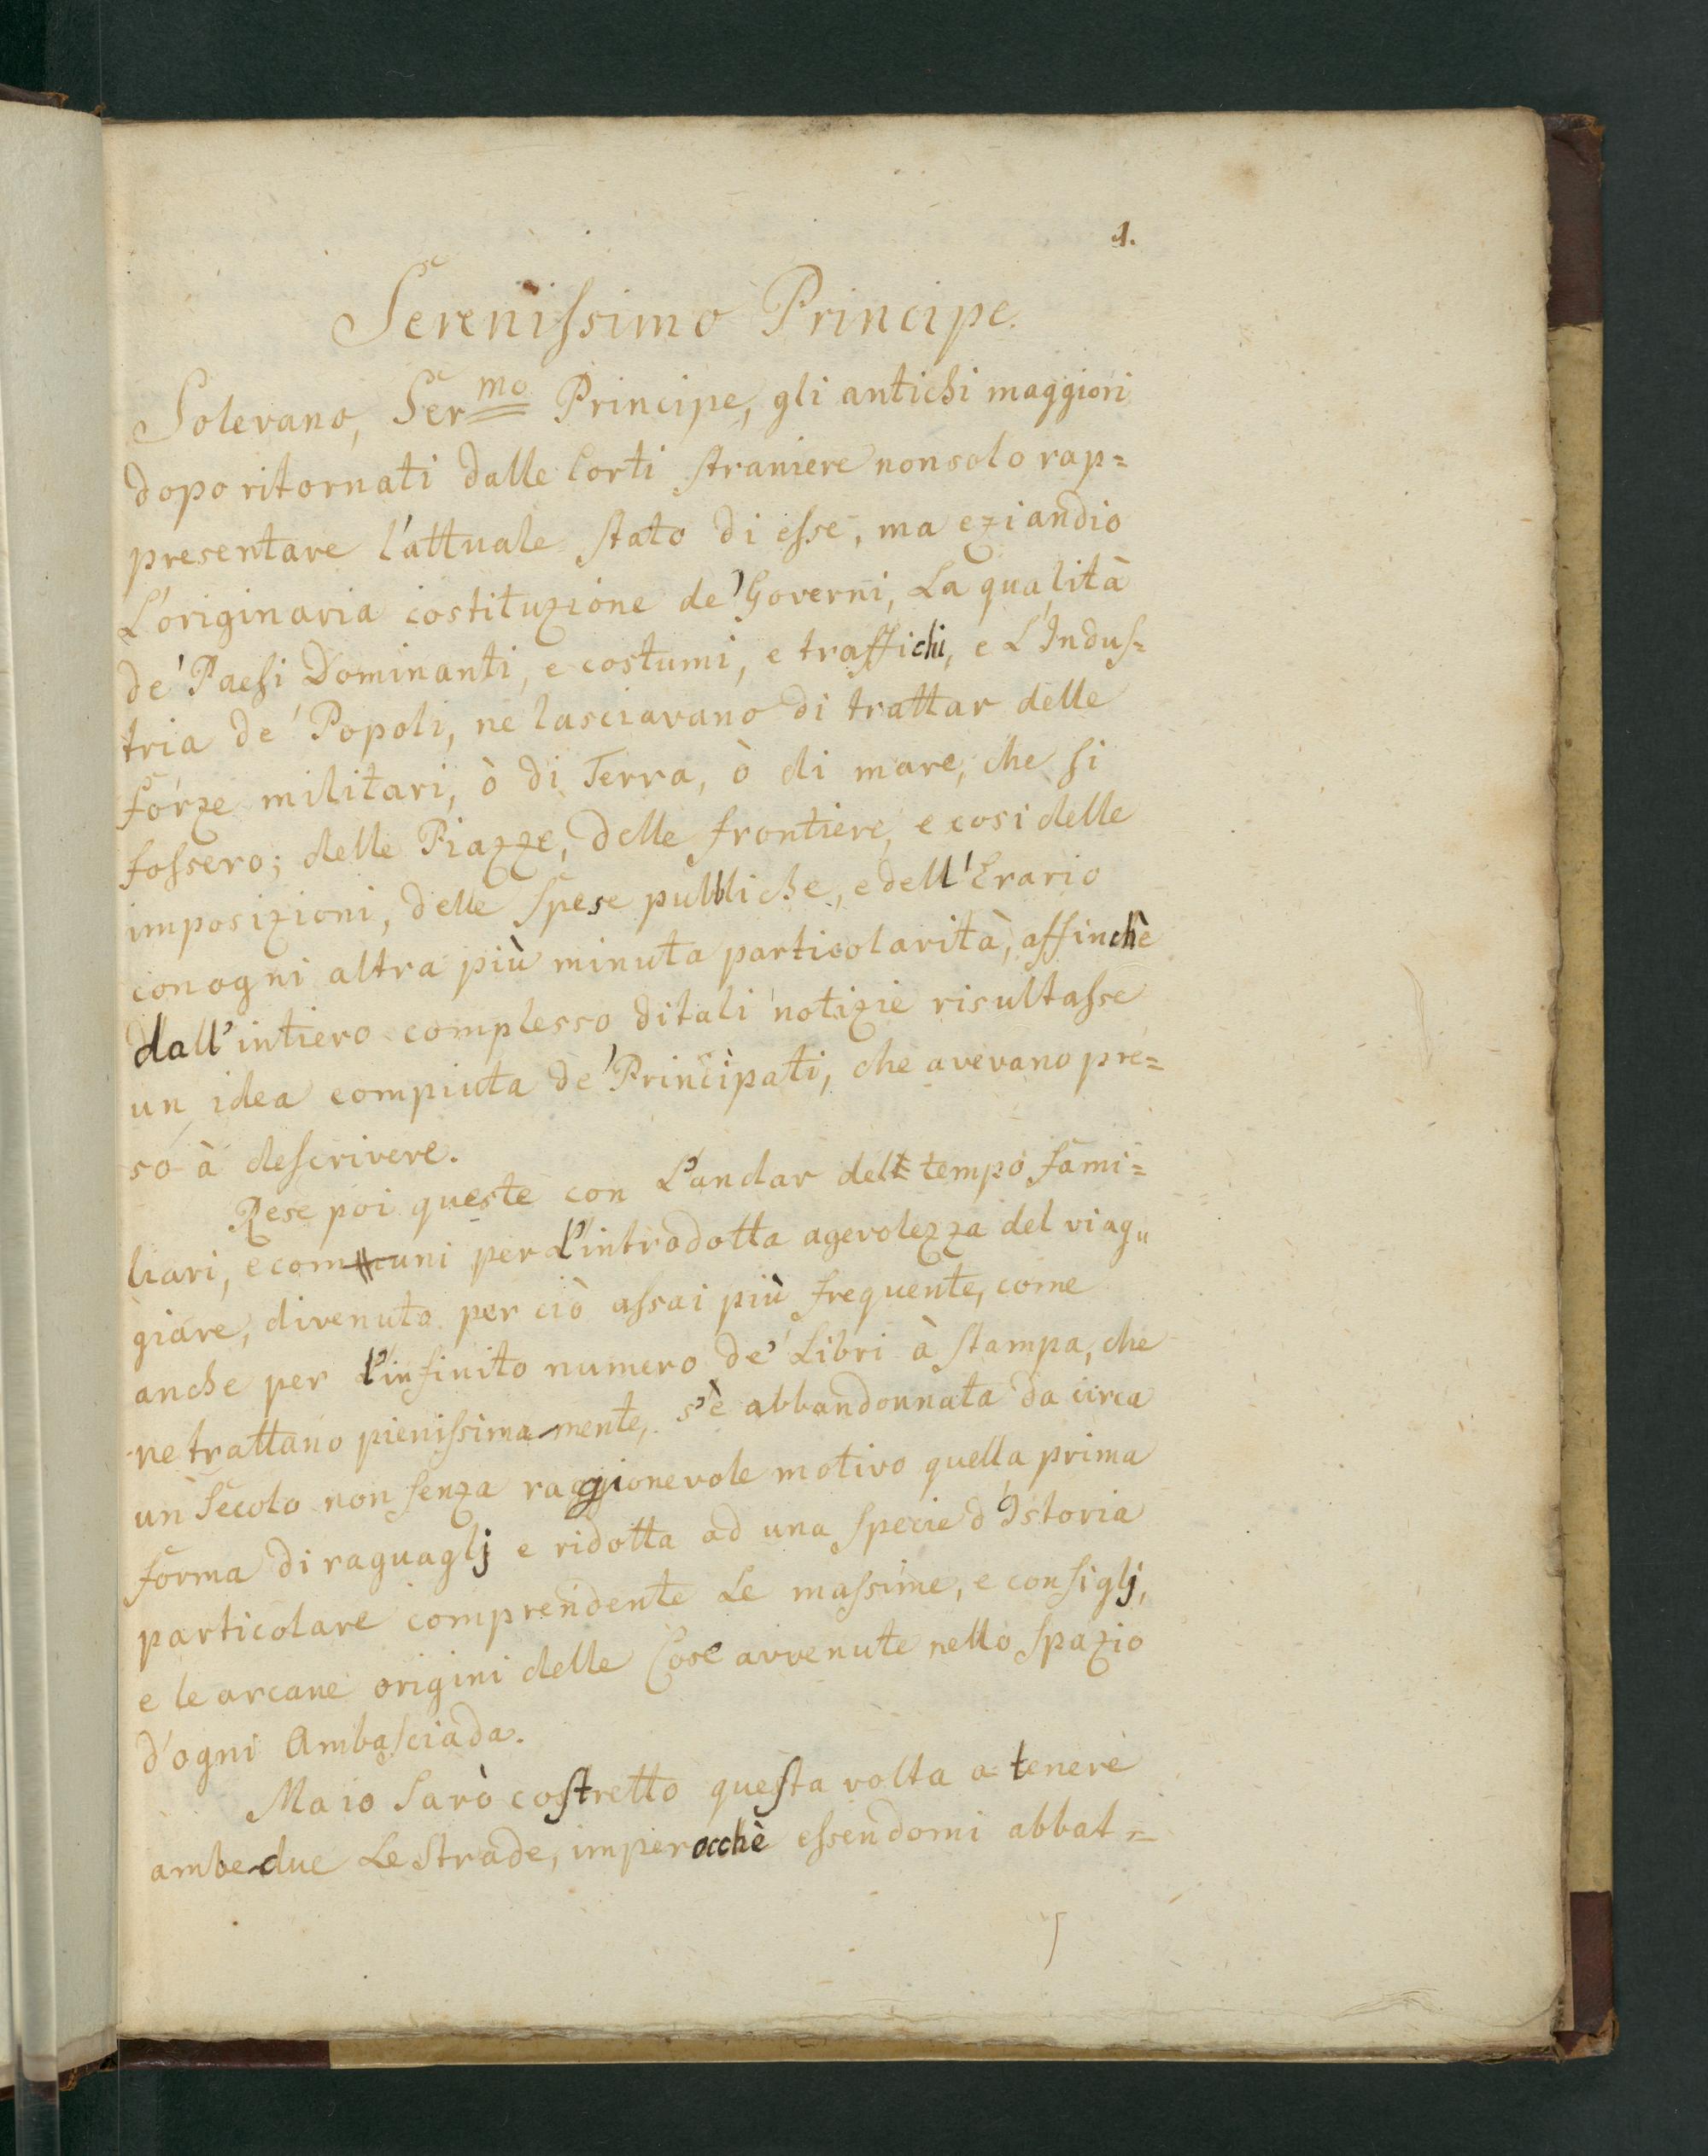 1.
Serenissimo Principe.
Solevano, Ser.mo Principe, gli antichi maggiori
dopo ritornati dalle Corti straniere non solo rap=
presentare l'attuale stato di esse, ma eziandio
L'originaria costituzione de' Governi, La qualità
de' Paesi Dominanti, e costumi, e traffichi, e L'Indus=
tria de' Popoli, ne lasciavano di trattar delle
forze militari, ò di Terra, ò di mare, che si
fossero; delle Piazze, delle frontiere, e cosi delle
imposizioni, delle Spese pubbliche, e dell'Erario
con ogni altra più minuta particolarità, affinchè
dall'intiero complesso di tali notizie risultasse
un idea compiuta de' Principati, che avevano pre=
so à descrivere.
Rese poi queste con L'andar del tempo fami=
liari, e comuni per L'introdotta agevolezza del viag=
giare, divenuto per ciò assai più frequente, come
anche per L'infinito numero de' Libri à stampa, che
ne trattano pienissimamente, s'è abbandonnata da circa
un Secolo non senza raggionevole motivo quella prima
forma di raguaglj e ridotta ad una specie d'Istoria
particolare comprendente Le massime, e consiglj,
e le arcane origini delle Cose avvenute nello spazio
d'ogni Ambasciada.
Ma io Sarò costretto questa volta a tenere
ambedue Le Strade, imperocchè essendomi abbat=